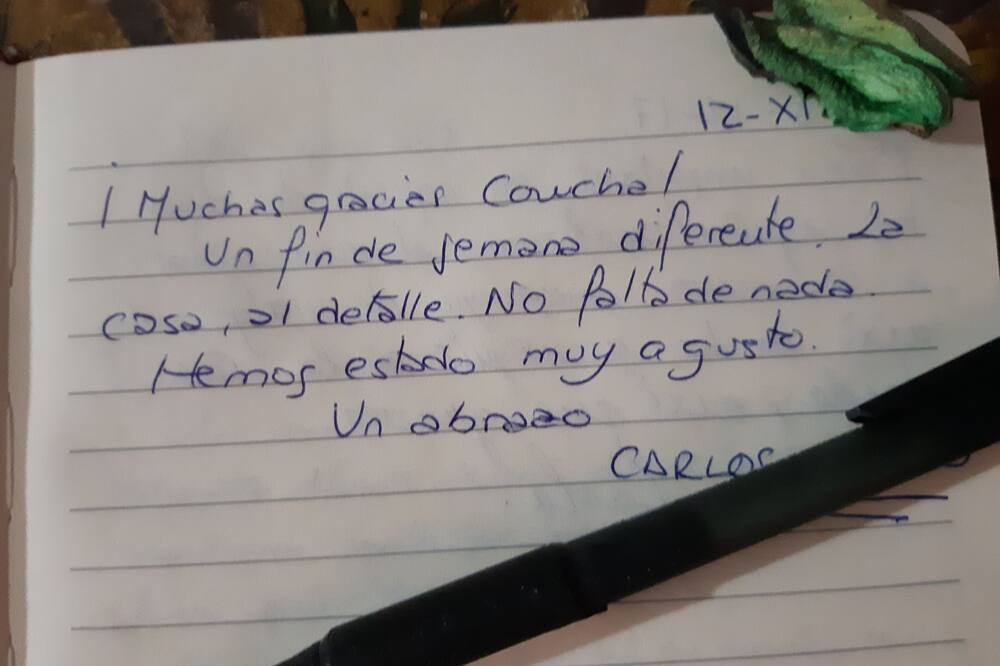 12-XI
¡Muchas gracias Concha!
Un fin de semana diferente. La
casa, al detalle. No falta de nada.
Hemos estado muy a gusto.
Un abrazo
CARLOS